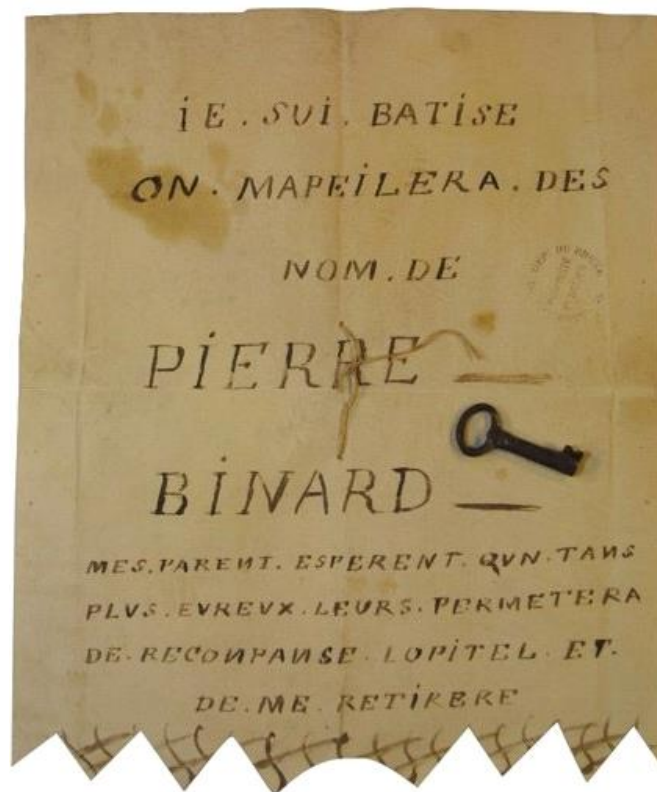 iE. SUi. BATiSE
ON. MAPEiLERA. DES
NOM. DE
PiERRE —
BiNARD —
MES. PARENT. ESPERENT. QVN. TANS
PLVS. EVREVX. LEURS. PERMETERA
DE. RECONPANSE. LOPiTEL. ET.
DE. ME. RETiRERE